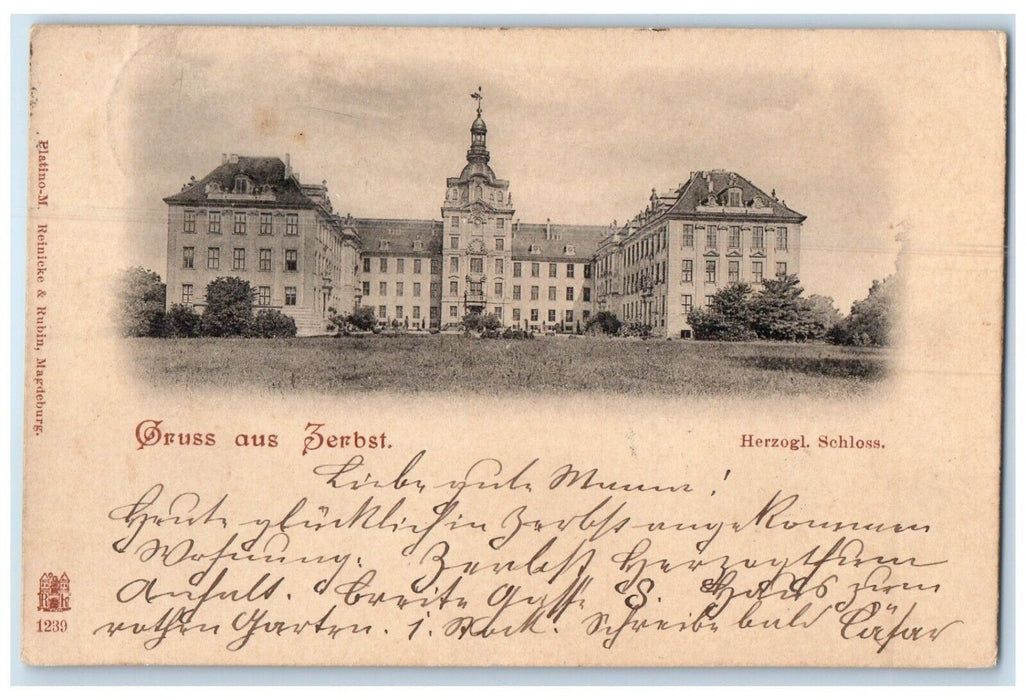 Platino-M. Reinicke & Rubin, Magdeburg.
Gruss aus Zerbst.
Herzogl. Schloss.
Liebe gute Mama!
Heute glücklich in Zerbst angekommen
Wohnung. Zerbst Herzogthum
Anhalt. Breite Gasse 8. Haus zum
rothen Garten. 1. Stock. Schreibe bald Cäsar
R R
1239